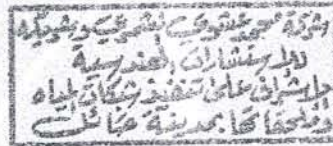 شركة محيي عشقوي الشمري وشريكه
للاستشارات الهندسية
الإشراف على تنفيذ شبكات المياه
وملحقاتها بمدينة حائل